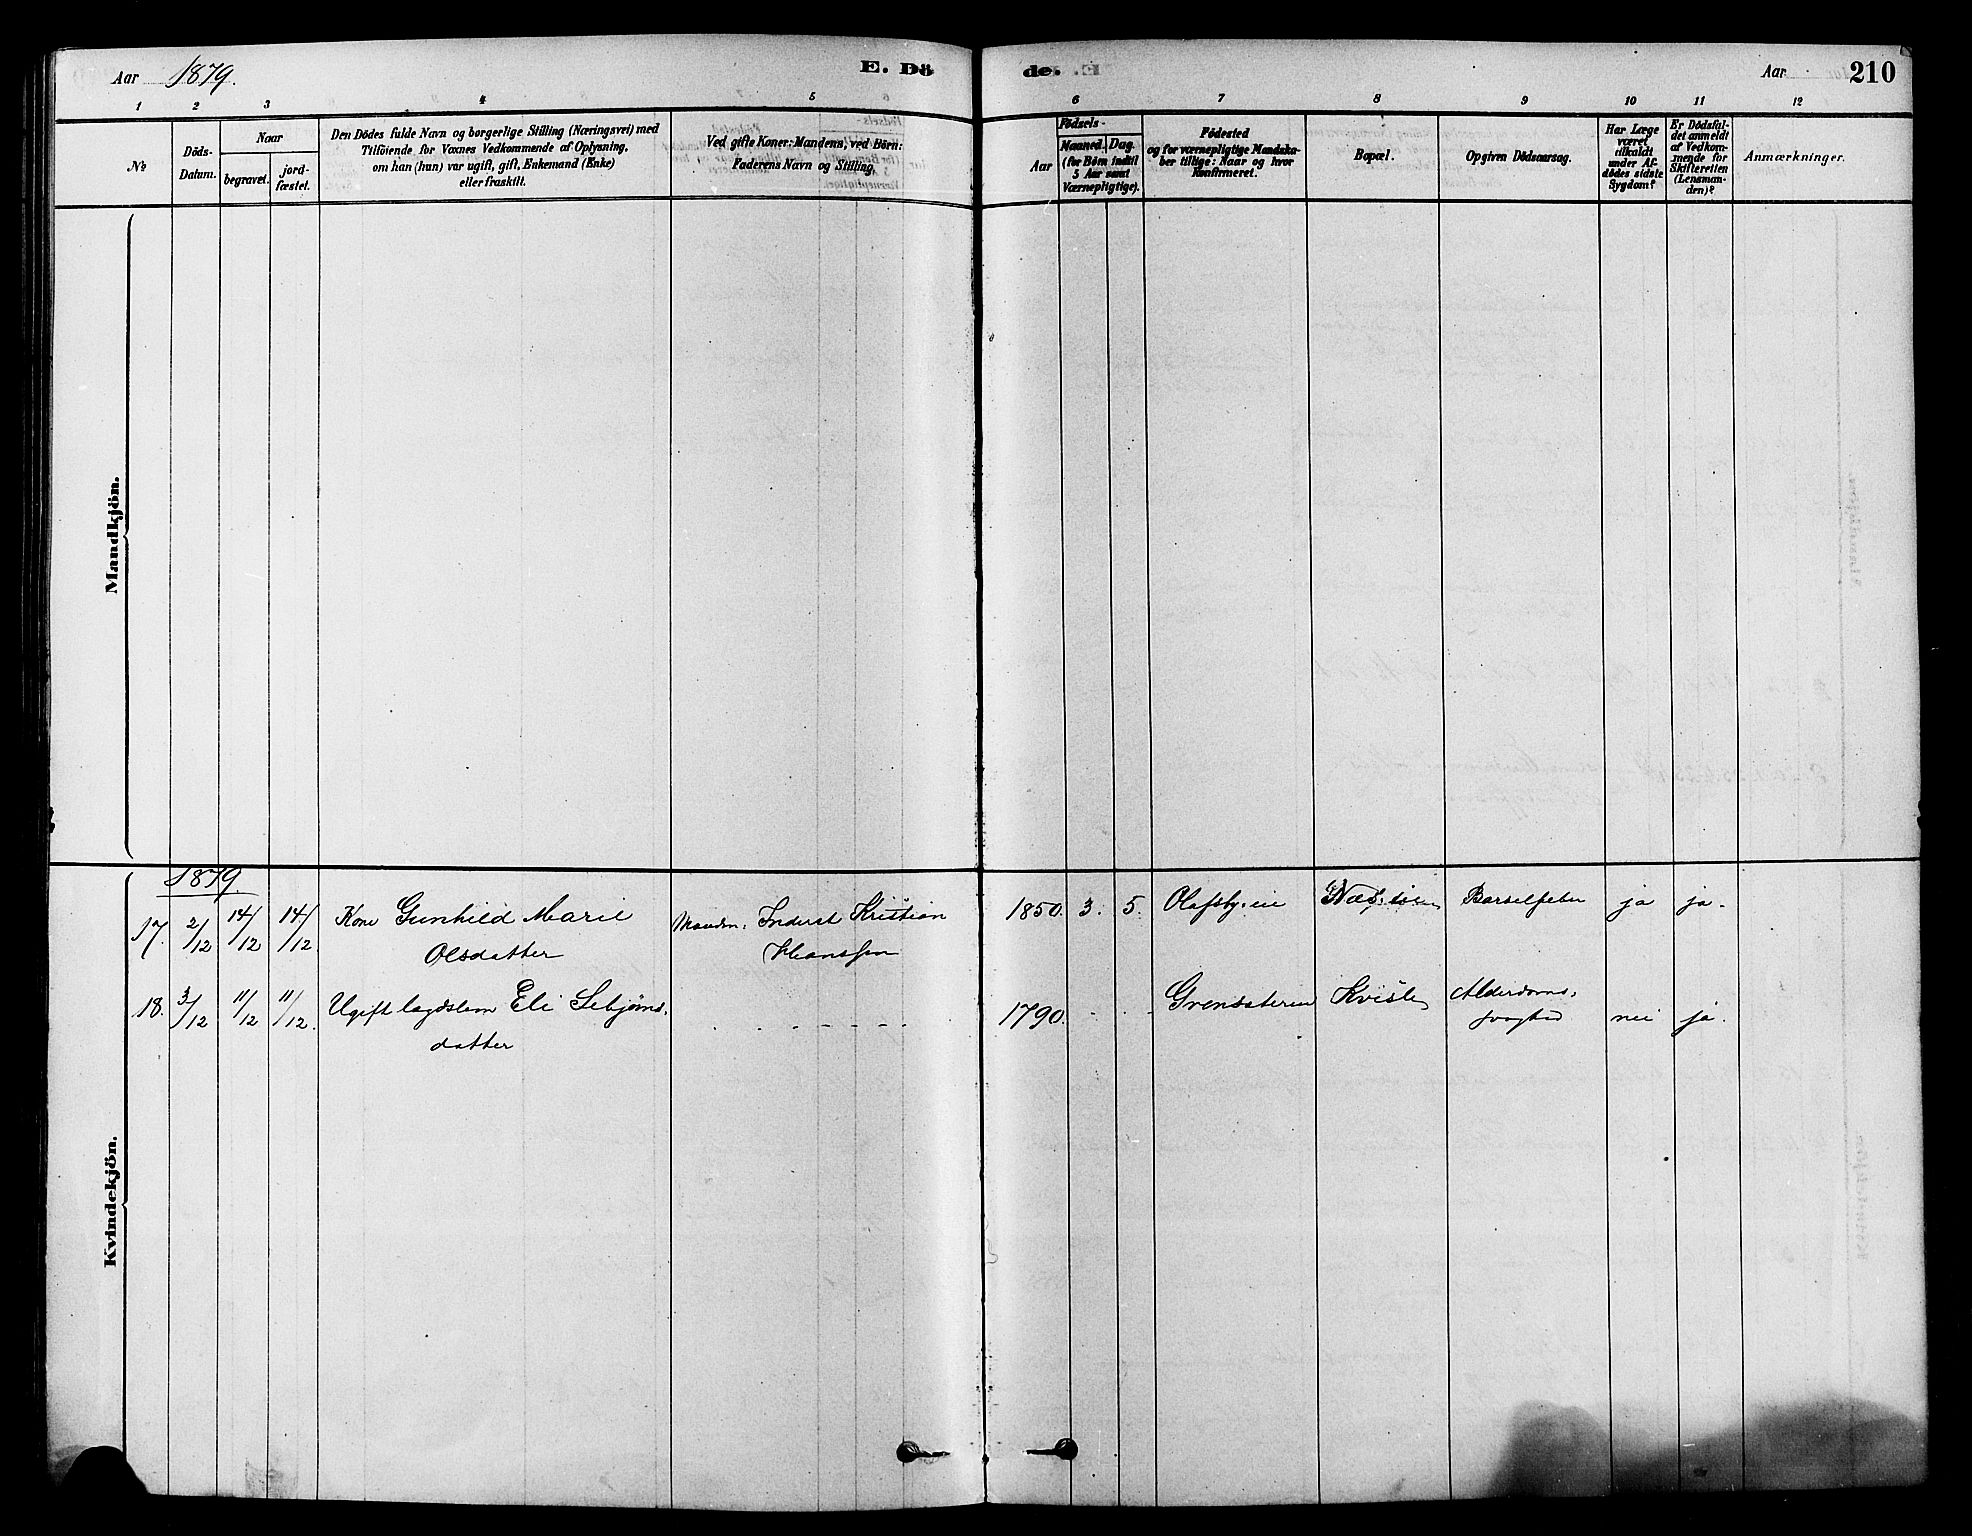 Aar 1879.
E. Dö
de.
Aar
210
1 2 3 4 5 6 7 8 9 10 11 12
№
Döds-
Datum.
Naar
begravet.
jord-
fæstet.
Den Dödes fulde Navn og borgerlige Stilling (Næringsvei) med
Tilföiende for Voxnes Vedkommende af Oplysning,
om han (hun) var ugift, gift, Enkemand (Enke)
eller fraskilt.
Ved gifte Koner: Mandens, ved Börn:
Faderens Navn og Stilling.
Födsels-
Aar
Maaned.
Dag.
(for Börn indtil
5 Aar samt
Værnepligtige).
Födested
og for værnepligtige Mandska-
ber tillige: Naar og hvor
Konfirmeret.
Bopæl.
Opgiven Dödsaarsag.
Har Læge
været
tilkaldt
under Af-
dödes sidste
Sygdom?
Er Dödsfal-
det anmeldt
af Vedkom-
mende for
Skifteretten
(Lensman-
den)?
Anmærkninger.
Mandkjön.
Kvindekjön.
1879
17. 2/12 14/12 14/12. Kone Gunhild Marie Manden: Kristian 1850. 3. 5. Olafsby eie Barselfeber ja ja.
Olsdatter Hanssen
18. 3/12 11/12 11/12. Ugift lægdslem Eli Sebjørns- 1790. Kvisle Alderdoms-
datter svaghed nei ja.